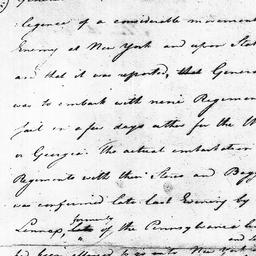 General
legence of a considerable movement
Enemy at New York and upon Stat
and that it was reported, that Genera
was to embark with nine Regimen
sail in a few days either for the W
or Georgia. The actual embarkation
Regiments with their Stores and Bagg
was confirmed late last Evening by
formerly
Linnap, of the Pennsylvania line
and
had been allowed to go into New York